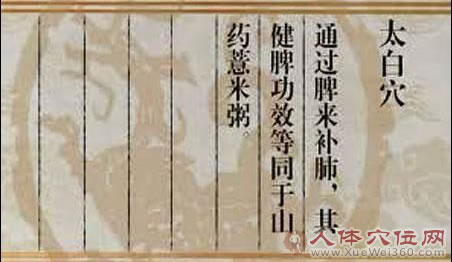 太白穴
通过脾来补肺，其
健脾功效等同于山
药薏米粥。
人体穴位网
www.XueWei360.com